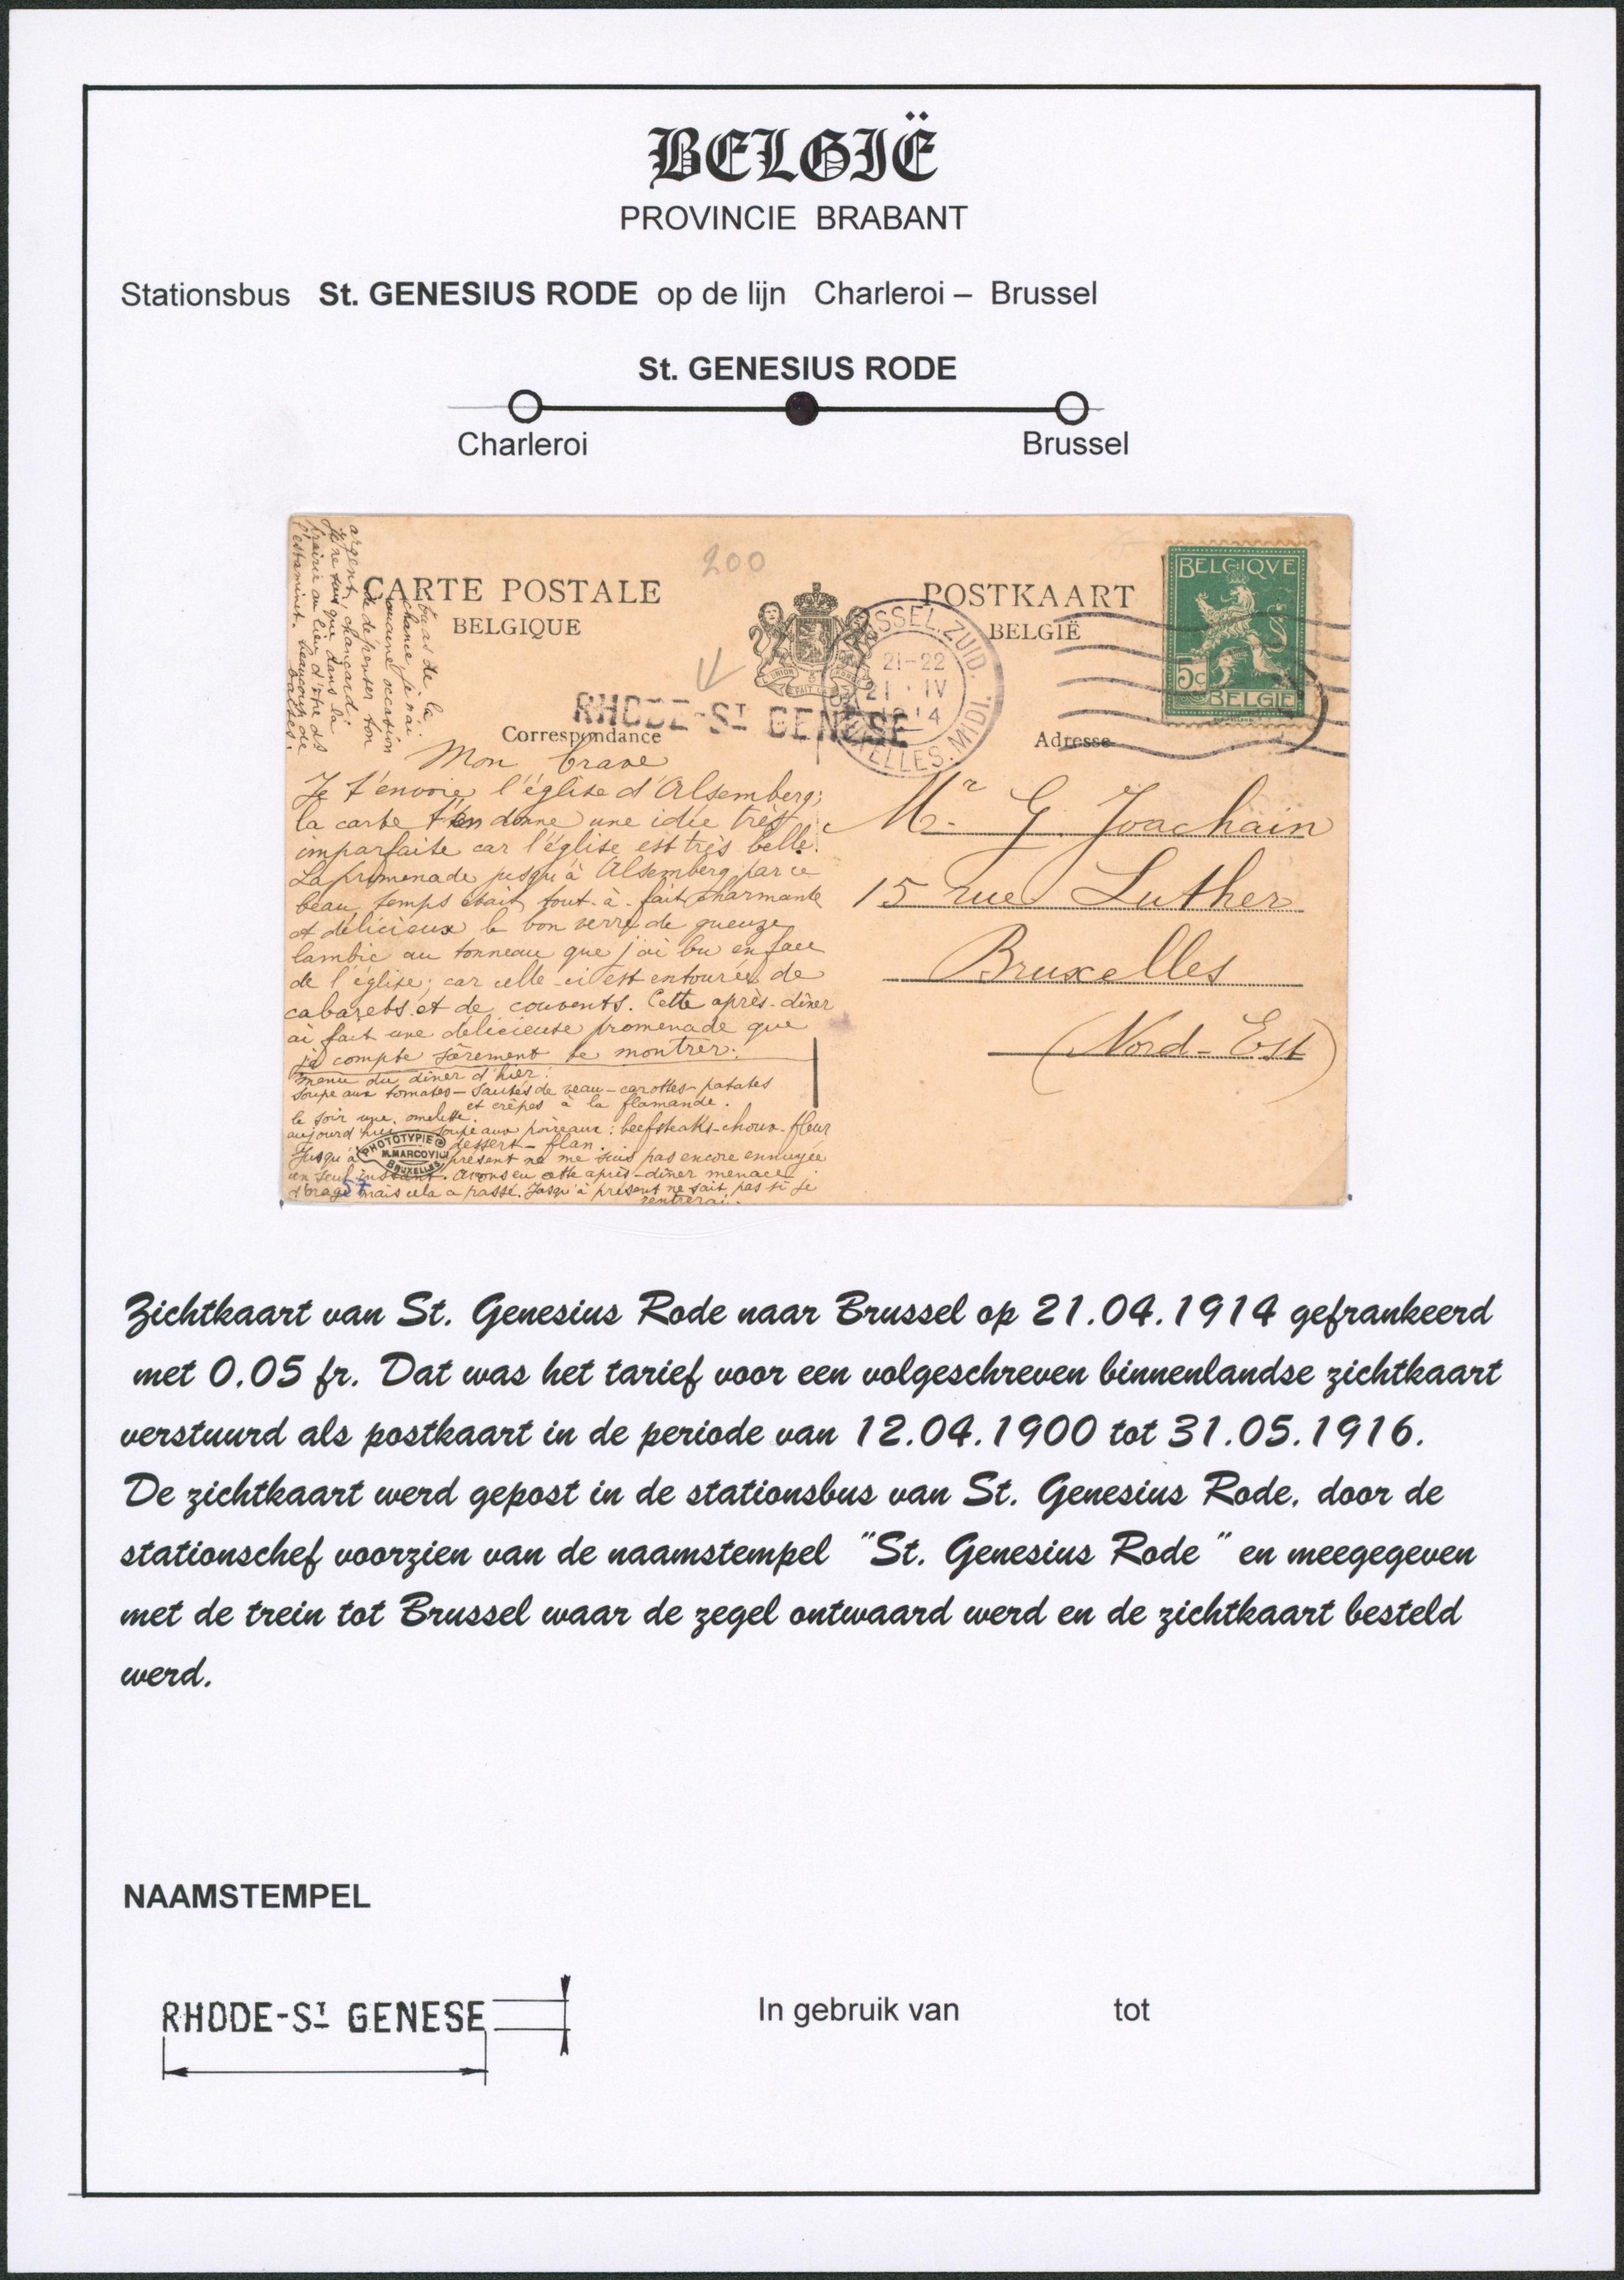 BELGIË
PROVINCIE BRABANT
Stationsbus St. GENESIUS RODE op de lijn Charleroi – Brussel
St. GENESIUS RODE
Charleroi Brussel
200
CARTE POSTALE
BELGIQUE
POSTKAART
BELGIË
BELGIQVE
5c
BELGIE
BRUSSEL.ZUID.
21-22
21 · IV
1914
BRUXELLES.MIDI.
RHODE-ST GENESE
Correspondance
Adresse
Mon brave
Je t'envoie l'église d'Alsemberg;
la carte t'en donne une idée très
imparfaite car l'église est très belle.
La promenade jusqu'à Alsemberg par ce
beau temps était tout-à-fait charmante
et délicieux le bon verre de gueuze
lambic au tonneau que j'ai bu en face
de l'église; car celle-ci est entourée de
cabarets et de couvents. Cette après-dîner
ai fait une délicieuse promenade que
je compte sûrement te montrer.
menu du dîner d'hier:
soupe aux tomates – sautés de veau – carottes – patates
et crêpes à la flamande.
le soir une omelette.
aujourd'hui soupe aux poireaux: beefsteaks – choux-fleur
dessert – flan.
Jusqu'à présent ne me suis pas encore ennuyée
un seul instant. Avons eu cette après-dîner menace
d'orage mais cela a passé. Jusqu'à présent ne sait pas si je
rentrerai.
tu as de la
chance je n'ai
aucune occasion
de dépenser ton
argent, chançard!
Je ne suis que dans la
prairie au lieu d'être ds
l'estaminet. beaucoup de
PHOTOTYPIE
M.MARCOVICI
BRUXELLES
57
Mr. G. Joachain
15 rue Luther
Bruxelles
(Nord-Est)
Zichtkaart van St. Genesius Rode naar Brussel op 21.04.1914 gefrankeerd
met 0.05 fr. Dat was het tarief voor een volgeschreven binnenlandse zichtkaart
verstuurd als postkaart in de periode van 12.04.1900 tot 31.05.1916.
De zichtkaart werd gepost in de stationsbus van St. Genesius Rode, door de
stationschef voorzien van de naamstempel "St. Genesius Rode " en meegegeven
met de trein tot Brussel waar de zegel ontwaard werd en de zichtkaart besteld
werd.
NAAMSTEMPEL
RHODE-ST GENESE
In gebruik van tot